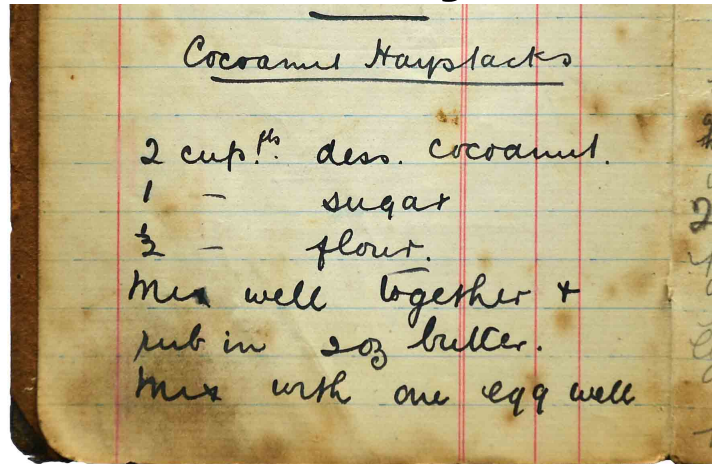 Cocoanut Haystacks
2 cup.fls. dess. cocoanut.
1 — sugar
½ — flour.
Mix well together &
rub in 2oz butter.
Mix with one egg well